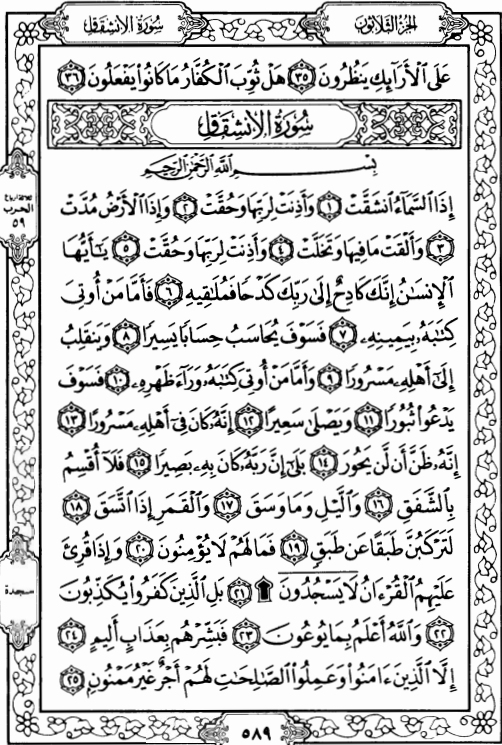 سُورَةُ الانشِقَاقِ
الجُزْءُ الثَّلَاثُونَ
عَلَى الْأَرَآئِكِ يَنظُرُونَ ٣٥ هَلْ ثُوِّبَ الْكُفَّارُ مَا كَانُوا۟ يَفْعَلُونَ ٣٦
سُورَةُ الانشِقَاقِ
بِسْمِ اللَّهِ الرَّحْمَٰنِ الرَّحِيمِ
إِذَا السَّمَآءُ انشَقَّتْ ١ وَأَذِنَتْ لِرَبِّهَا وَحُقَّتْ ٢ وَإِذَا الْأَرْضُ مُدَّتْ
٣ وَأَلْقَتْ مَا فِيهَا وَتَخَلَّتْ ٤ وَأَذِنَتْ لِرَبِّهَا وَحُقَّتْ ٥ يَٰٓأَيُّهَا
الْإِنسَٰنُ إِنَّكَ كَادِحٌ إِلَىٰ رَبِّكَ كَدْحًا فَمُلَٰقِيهِ ٦ فَأَمَّا مَنْ أُوتِىَ
كِتَٰبَهُۥ بِيَمِينِهِۦ ٧ فَسَوْفَ يُحَاسَبُ حِسَابًا يَسِيرًا ٨ وَيَنقَلِبُ
إِلَىٰٓ أَهْلِهِۦ مَسْرُورًا ٩ وَأَمَّا مَنْ أُوتِىَ كِتَٰبَهُۥ وَرَآءَ ظَهْرِهِۦ ١٠ فَسَوْفَ
يَدْعُوا۟ ثُبُورًا ١١ وَيَصْلَىٰ سَعِيرًا ١٢ إِنَّهُۥ كَانَ فِىٓ أَهْلِهِۦ مَسْرُورًا ١٣
إِنَّهُۥ ظَنَّ أَن لَّن يَحُورَ ١٤ بَلَىٰٓ إِنَّ رَبَّهُۥ كَانَ بِهِۦ بَصِيرًا ١٥ فَلَآ أُقْسِمُ
بِالشَّفَقِ ١٦ وَالَّيْلِ وَمَا وَسَقَ ١٧ وَالْقَمَرِ إِذَا اتَّسَقَ ١٨
لَتَرْكَبُنَّ طَبَقًا عَن طَبَقٍ ١٩ فَمَا لَهُمْ لَا يُؤْمِنُونَ ٢٠ وَإِذَا قُرِئَ
عَلَيْهِمُ الْقُرْءَانُ لَا يَسْجُدُونَ ۩ ٢١ بَلِ الَّذِينَ كَفَرُوا۟ يُكَذِّبُونَ
٢٢ وَاللَّهُ أَعْلَمُ بِمَا يُوعُونَ ٢٣ فَبَشِّرْهُم بِعَذَابٍ أَلِيمٍ ٢٤
إِلَّا الَّذِينَ ءَامَنُوا۟ وَعَمِلُوا۟ الصَّٰلِحَٰتِ لَهُمْ أَجْرٌ غَيْرُ مَمْنُونٍ ٢٥
الحزب
٥٩
سجدة
٥٨٩